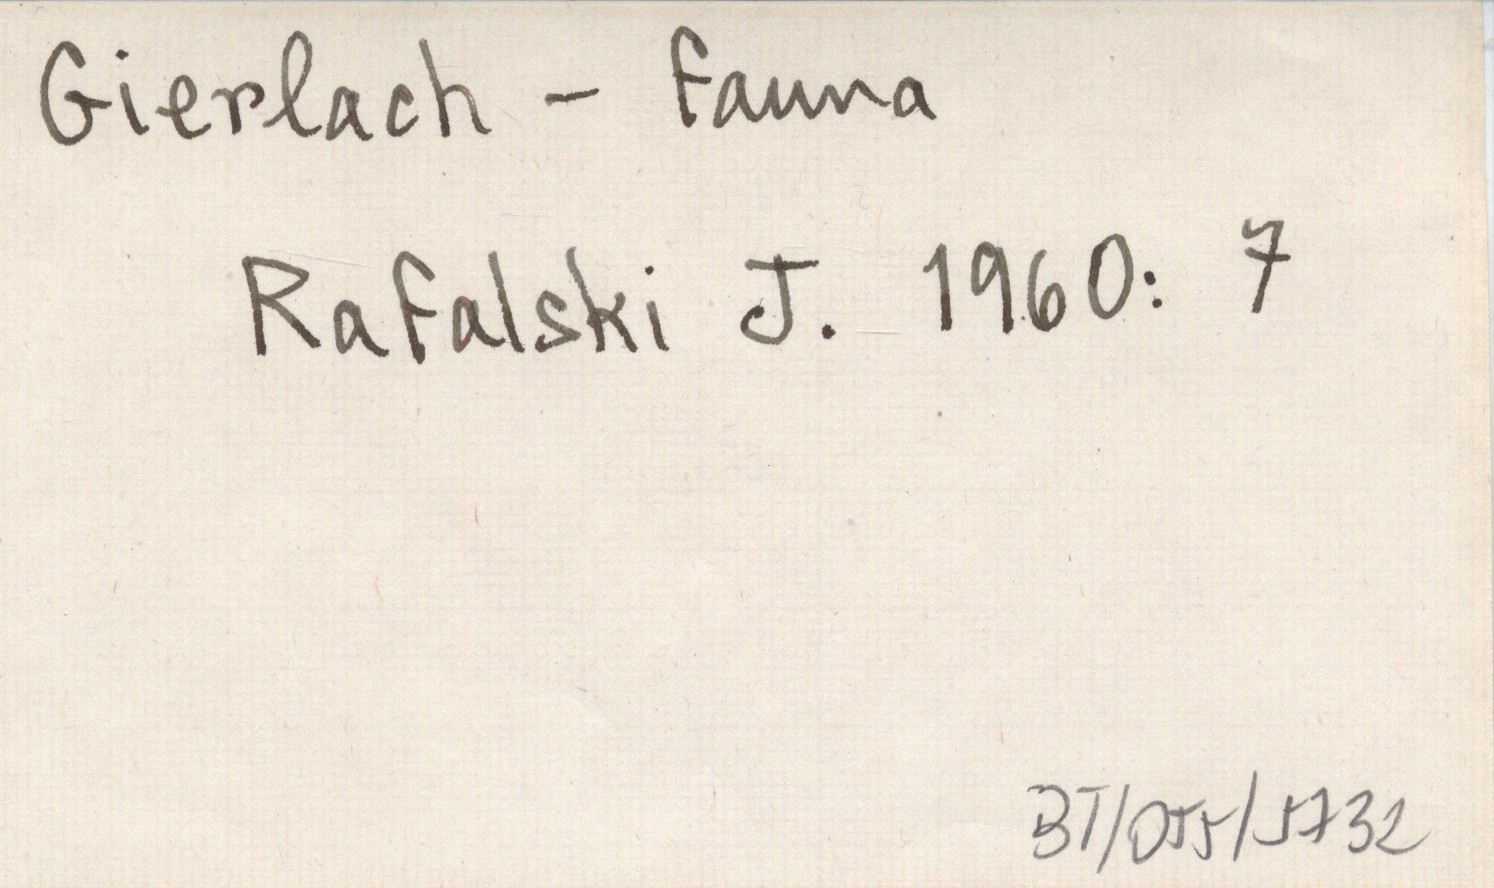 Gierlach - fauna
Rafalski J. 1960: 7
BT/055/5732